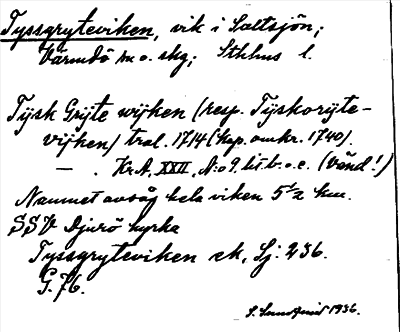 Tyssgryteviken, vik i Saltsjön;
Värmdö m.o. skg; Sthlms l.
Tÿsk Grÿte wÿken (resp. Tÿskorÿte-
vÿken) tral. 1714 (kop. omkr. 1740).
— . KrA, XXII, N:o 9. lit. b. o. c. (Vänd!)
Namnet avsåg hela viken 5 1/2 km.
SSV Djurö kyrka
Tyssgryteviken ek, Lj. 236.
G. 76.
1936.